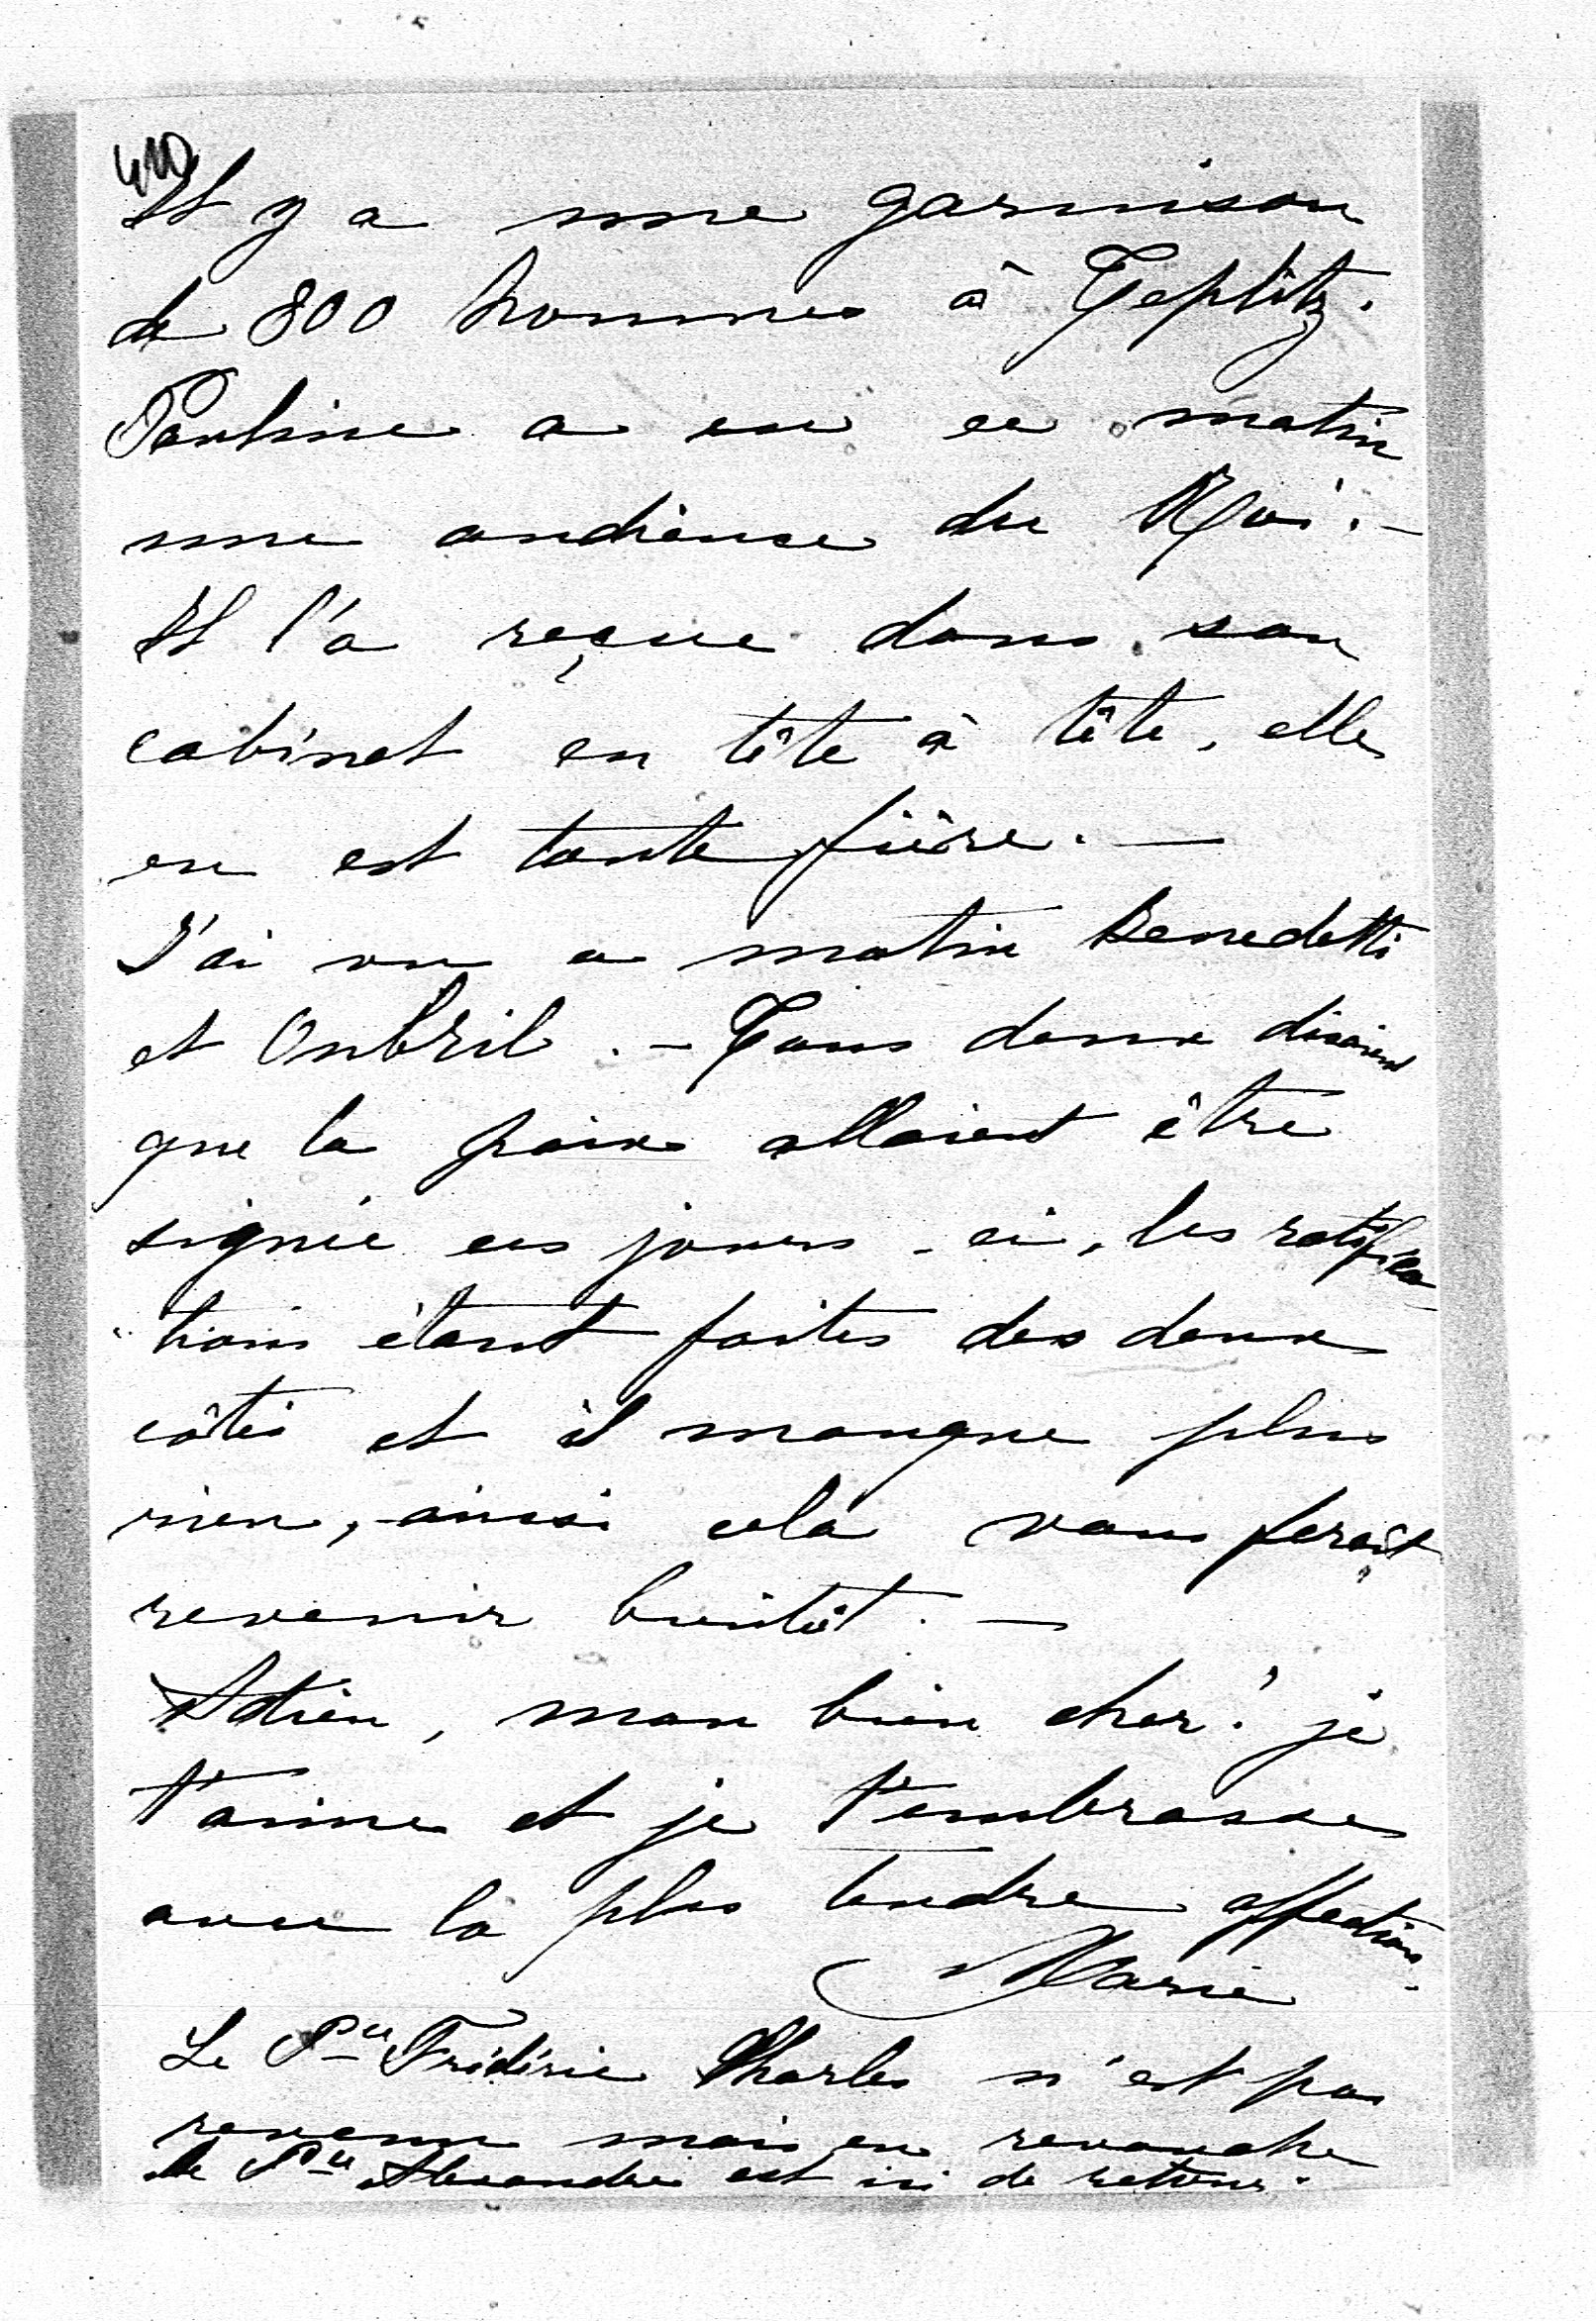 410
Il y a une garnison
de 800 hommes à Teplitz.
Pauline a eu ce matin
une audience du Roi. —
Il l'a reçue dans son
cabinet en tête à tête, elle
en est toute fière. —
J'ai vu ce matin Benedetti
et Oubril. — Tous deux disaient
que la paix allaient être
signée ces jours-ci, les ratifica
tions étant faites des deux
côtés et il manque plus
rien, ainsi cela vous ferait
revenir bientôt. —
Adieu, mon bien cher! je
t'aime et je t'embrasse
avec la plus tendre affection.
Marie
Le Pce Frédéric Charles n'est pas
revenu mais en revanche
le Pce Alexandre est ici de retour.